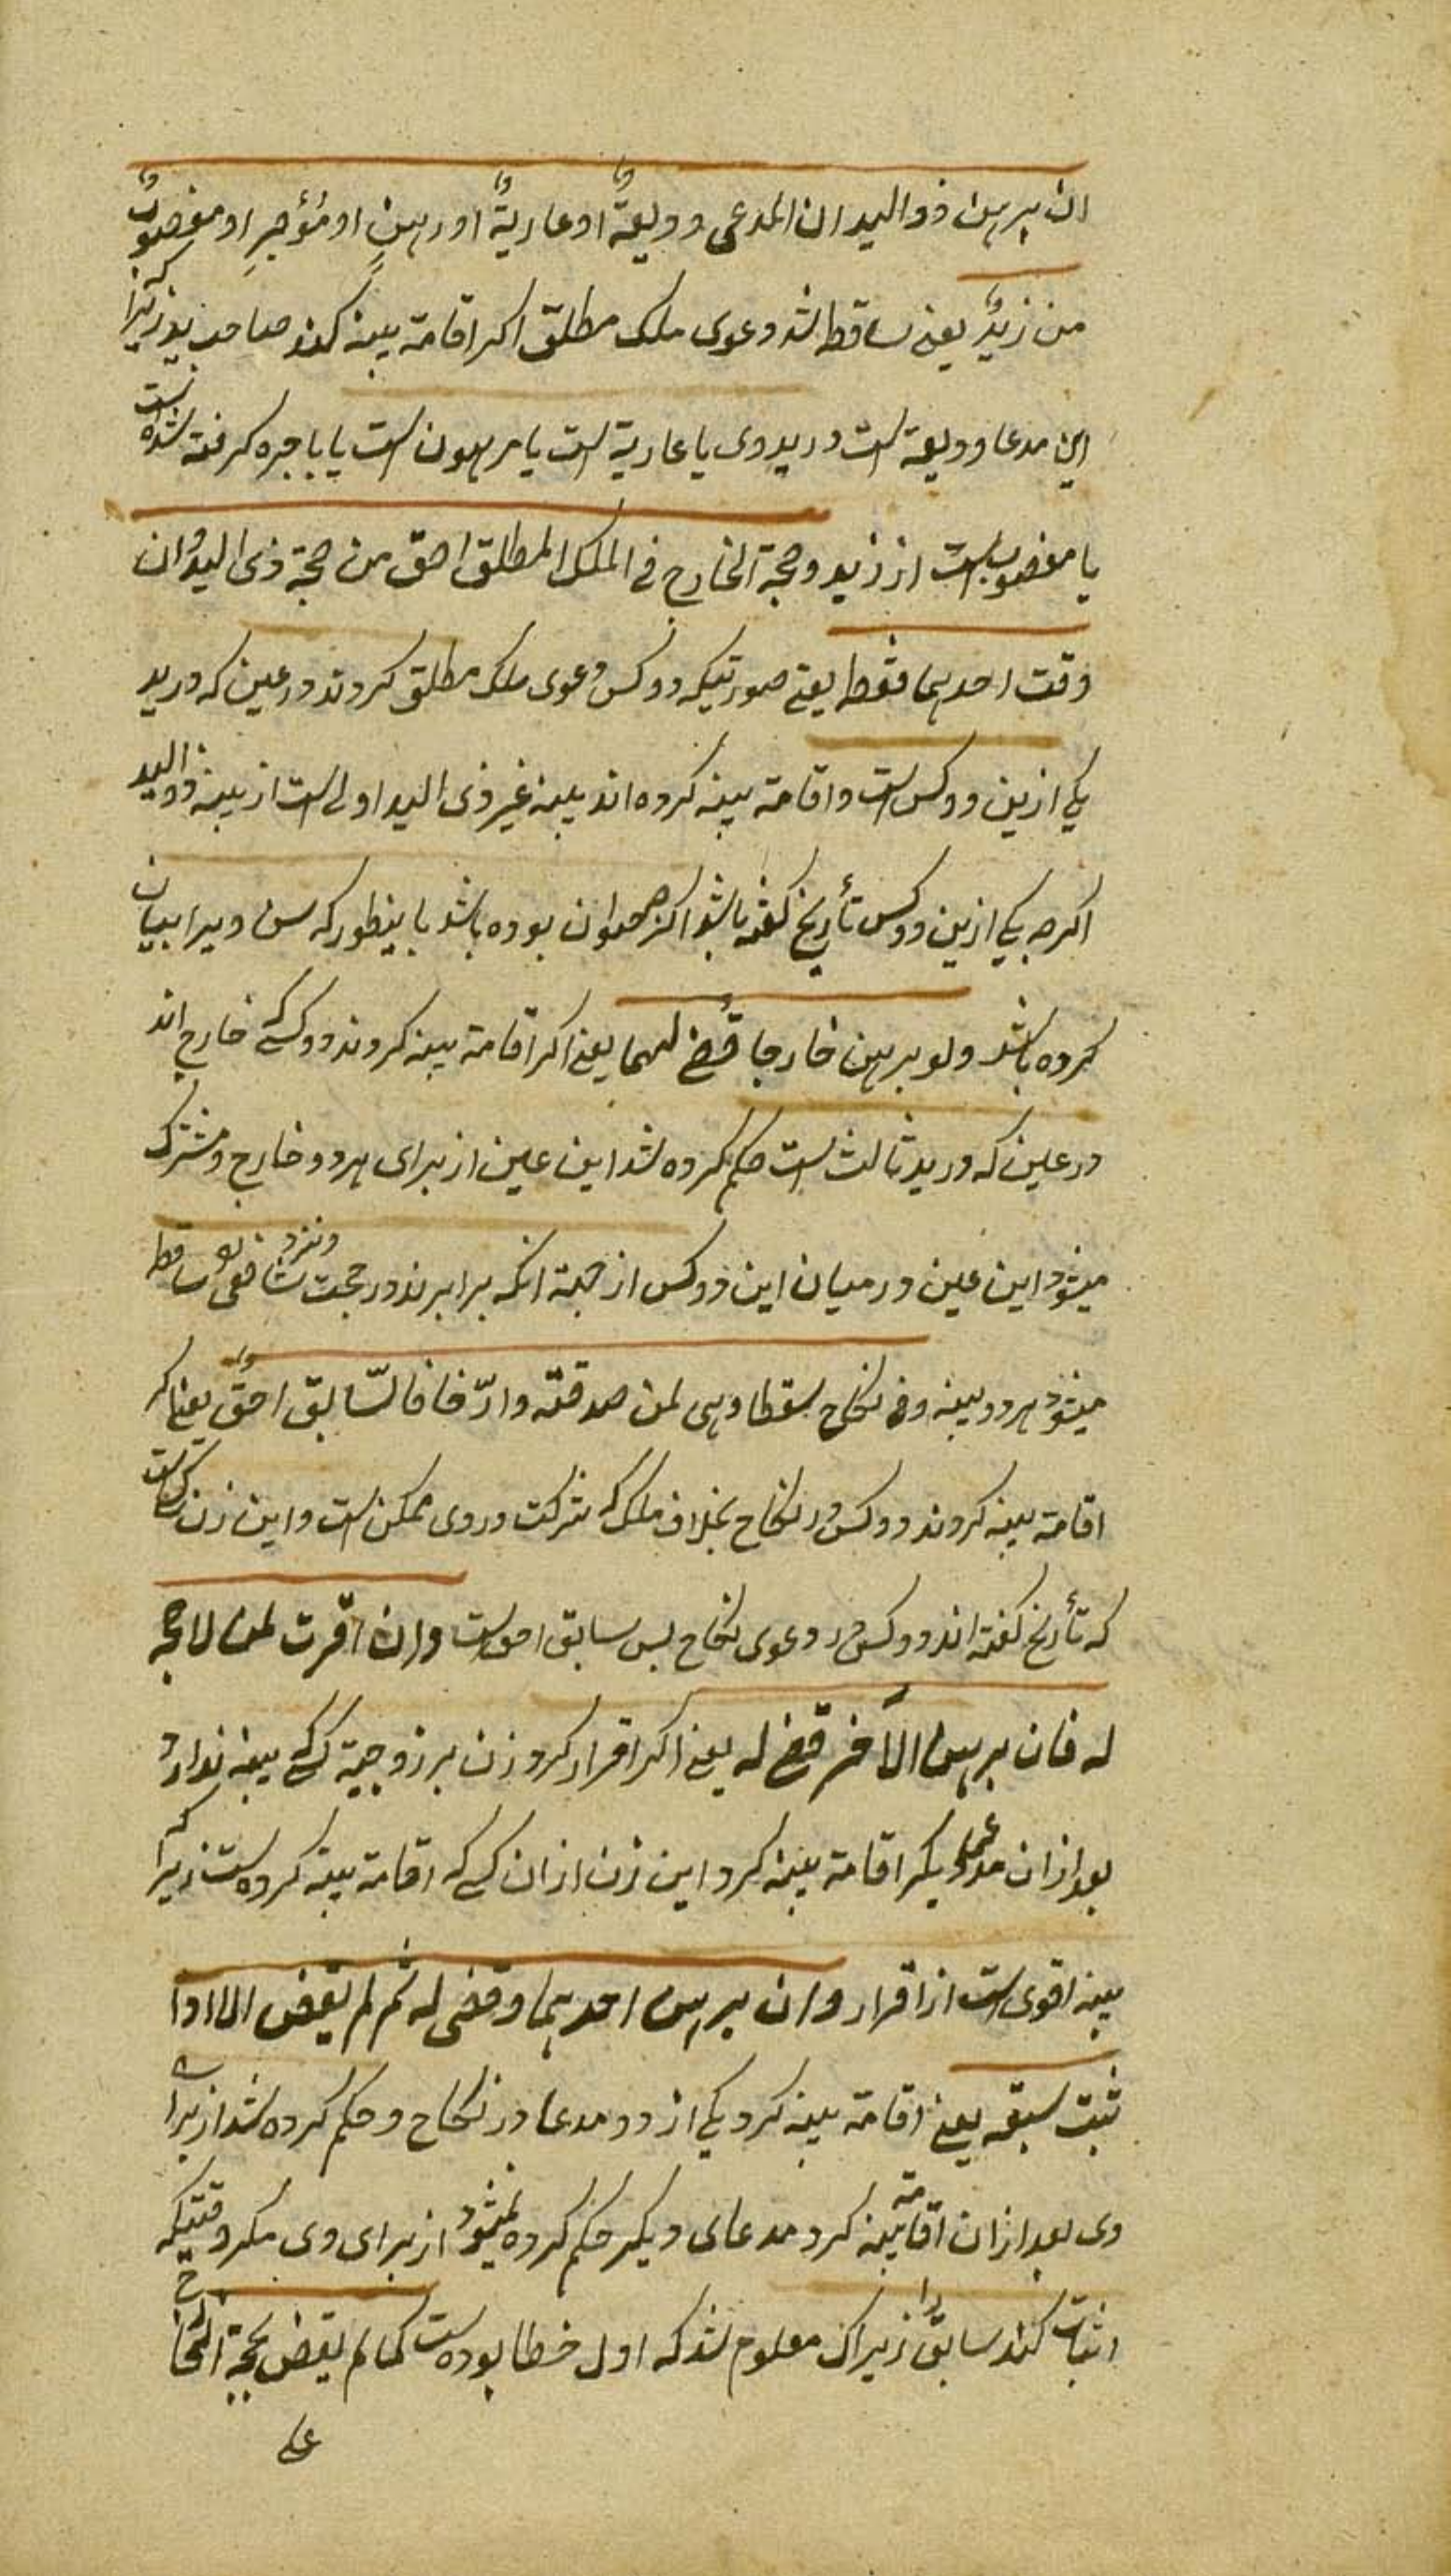 ان برهن ذو الید ان المدعی ودیعة او عاریة او رهن او مؤجر او مغصوب
من زید یعنی ساقط شد دعوی ملک مطلق اکر اقامة بینه کند صاحب ید زیرا که
این مدعا ودیعة است در ید وی یا عاریة است یا مرهون است یا باجره کرفته شده است
یا مغصوب است از زید وحجة الخارج فی الملک المطلق احق من حجة ذی الید وان
وقت احدهما فقط یعنی صورتیکه دو کس دعوی ملک مطلق کردند در عین که در ید
یکی ازین دو کس است واقامة بینه کرده اند بینه غیر ذی الید اولی است از بینه ذو الید
اکرچه یکی ازین دو کس تأریخ کفته باشد اکرچه حیوان بوده باشد باینطور که سن ویرا بیان
کرده باشد ولو برهن خارجا قضی لهما یعنی اکر اقامة بینه کردند دو کسی که خارج اند
در عین که در ید ثالث است حکم کرده شد این عین از برای هر دو خارج ومشترک
میشود این عین در میان این دو کس از جهة انکه برابرند در حجت ونزد شافعی ساقط
میشود هر دو بینه وفی نکاح سقطا وهی لمن صدقته وان ارّخا فالسّابق احق یعنی اکر
اقامة بینه کردند دو کس در نکاح بخلاف ملک که شرکت در وی ممکن است واین زن
که تأریخ کفته اند دو کس در دعوی نکاح پس سابق احق است وان اقرت لمن لا حجة
له فان برهن الآخر قضی له یعنی اکر اقرار کرد زن بر زوجیة کسی که بینه ندارد
بعد ازان مدعی دیکر اقامة بینه کرد این زن ازان کسی که اقامة بینه کرده است زیرا که
بینه اقوی است از اقرار وان برهن احدهما وقضی له ثم لم یقض الا اذا
ثبت سبقه یعنی اقامة بینه کرد یکی از دو مدعا در نکاح وحکم کرده شد از برای
وی بعد ازان اقامة بینه کرد مدعای دیکر حکم کرده نمیشود از برای وی مکر وقتیکه
اثبات کند سابق را زیراک معلوم شد که اول خطا بوده است کما لم یقض بحجة الخارج
علی